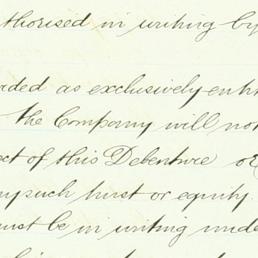 thorised in writing by
rded as exclusively enti
the Company will not
ect of this Debenture or
ny such trust or equity.
ust be in writing unde